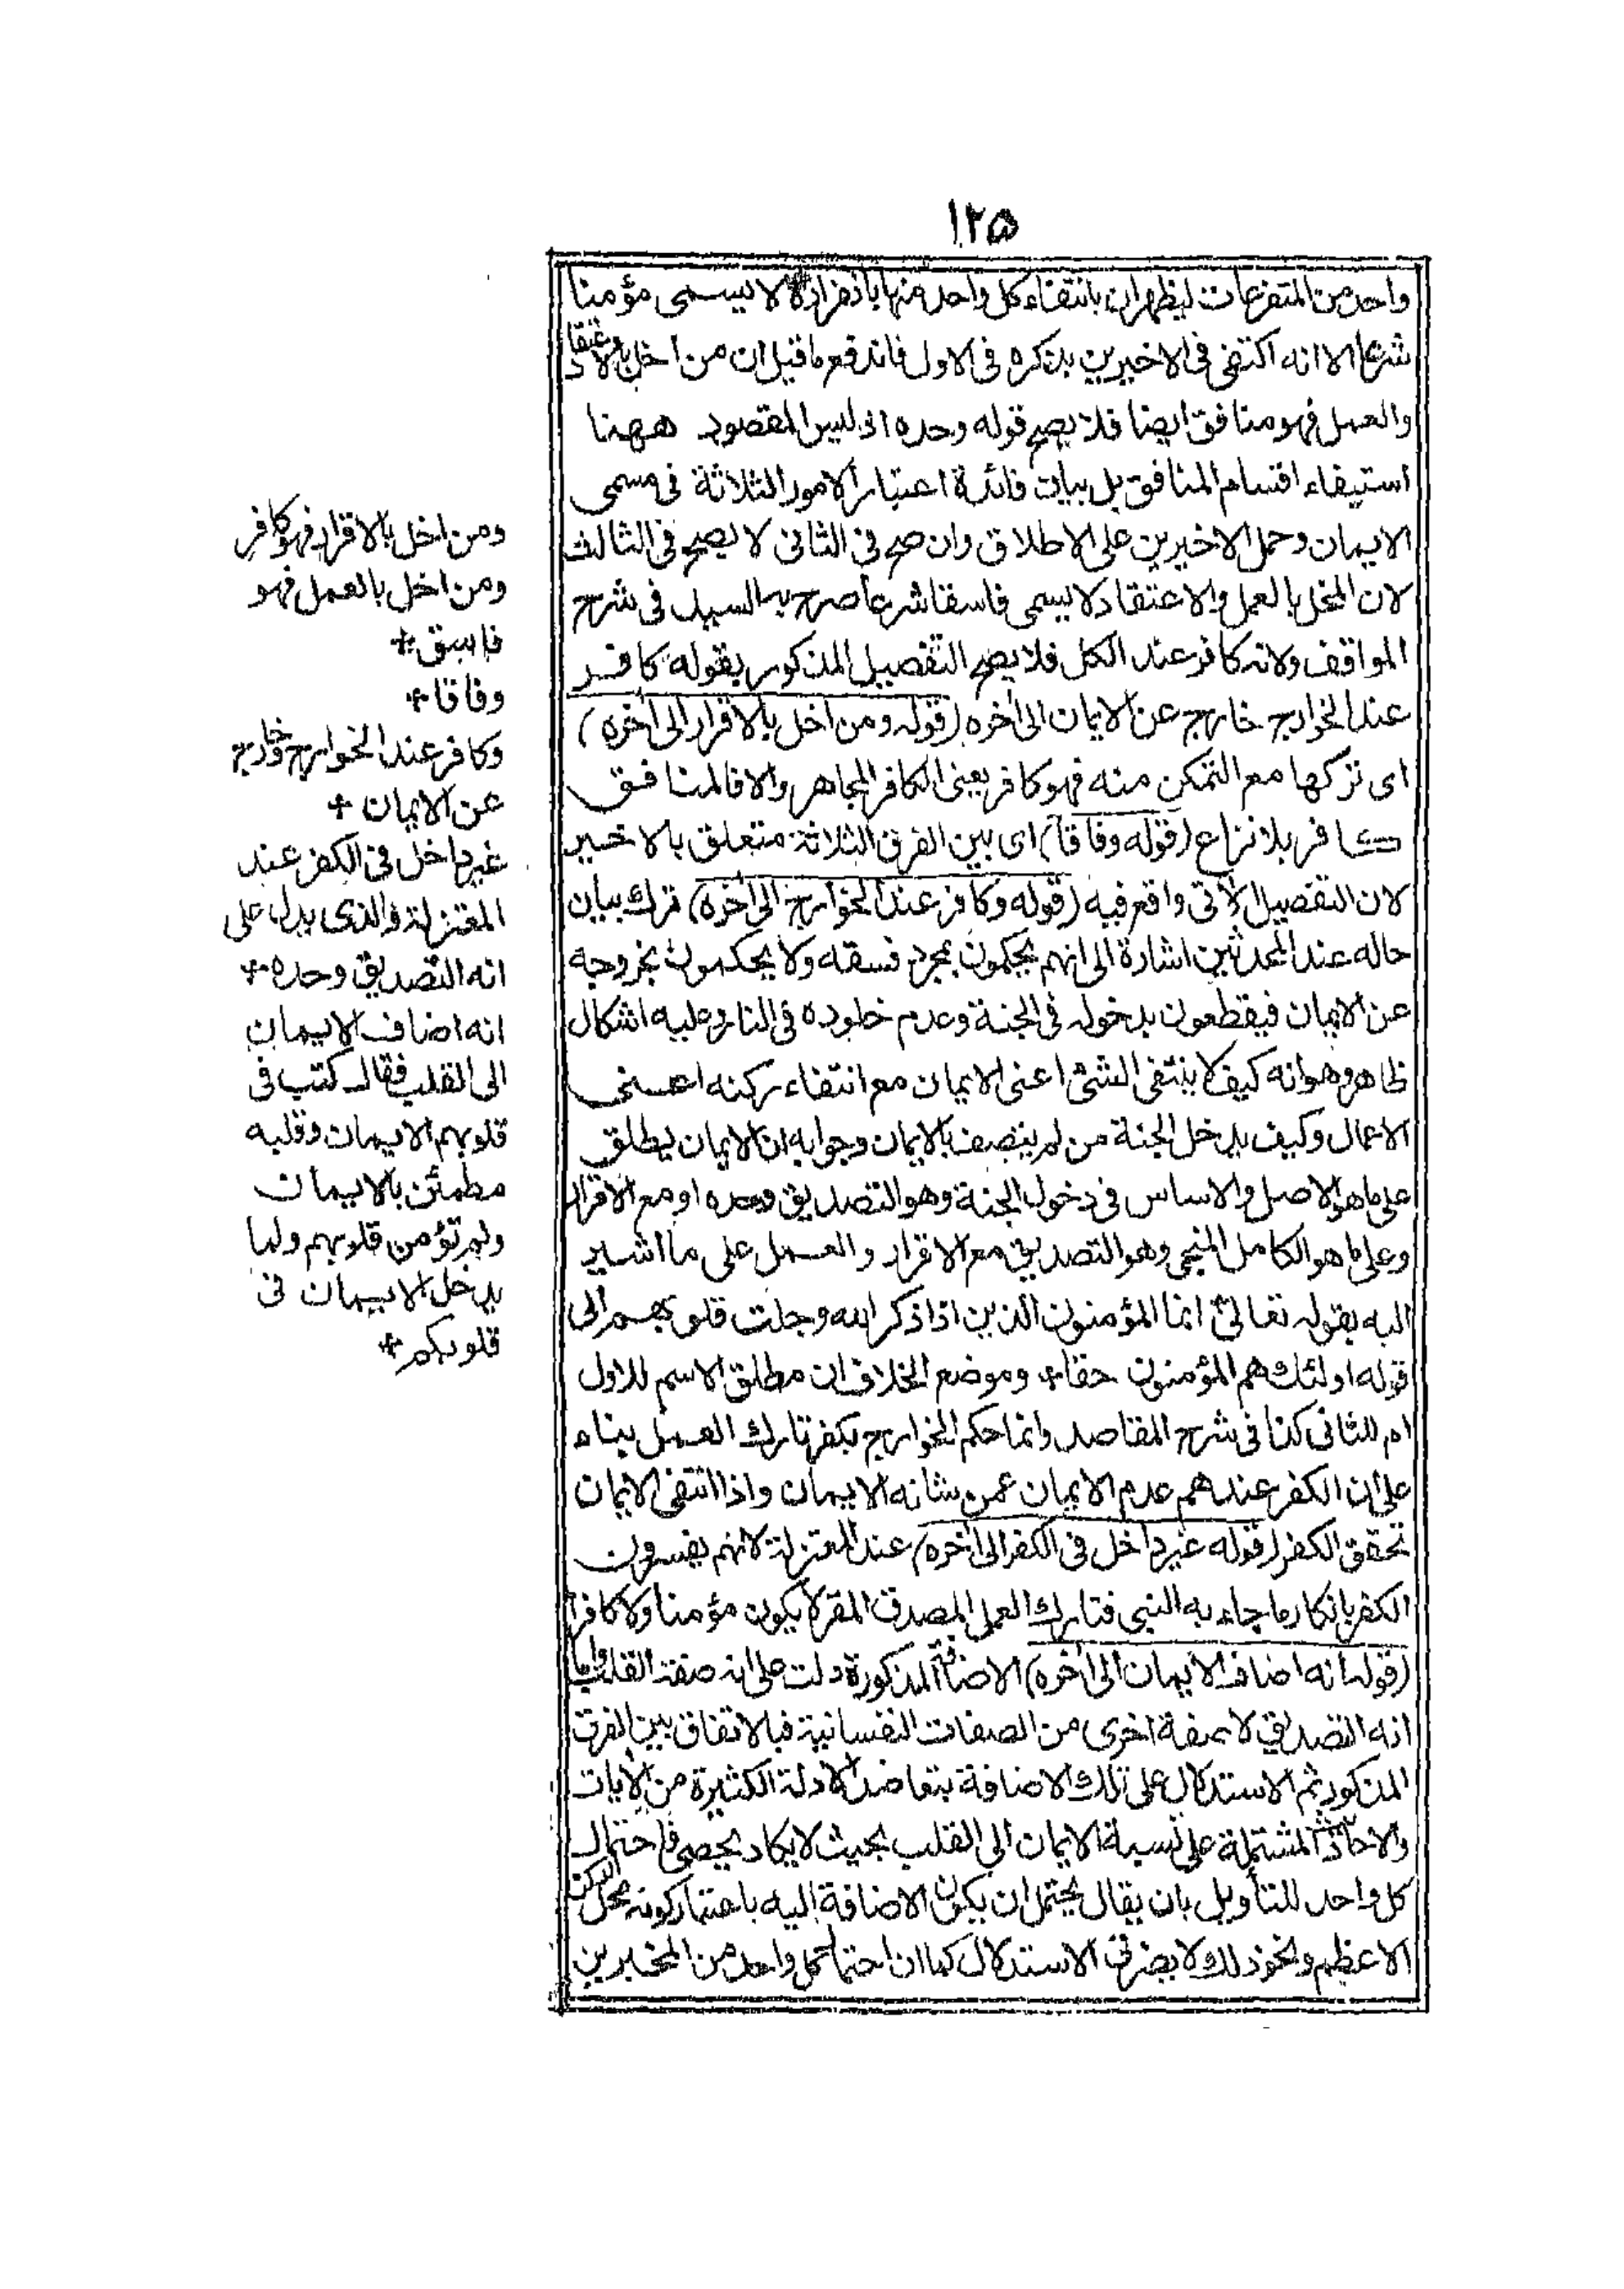 ١٢٥
واحد من المتفرعات ليظهر ان بانتفاء كل واحد منها بانفراده لا يسمى مؤمنا
شرعا الا انه اكتفى فى الاخيرين بذكره فى الاول فاندفع ما قيل ان من اخل بالاعتقاد
والعمل فهو منافق ايضا فلا يصح قوله وحده اذ ليس المقصود ههنا
استيفاء اقسام المنافق بل بيان فائدة اعتبار الامور الثلاثة فى مسمى
الايمان وحمل الاخيرين على الاطلاق وان صح فى الثانى لا يصح فى الثالث
لان المخل بالعمل والاعتقاد لا يسمى فاسقا شرعا صرح به السيد فى شرح
المواقف ولانه كافر عند الكل فلا يصح التفصيل المذكور بقوله كافر
عند الخوارج خارج عن الايمان الى اخره (قوله ومن اخل بالاقرار الى اخره)
اى تركها مع التمكن منه فهو كافر يعنى الكافر المجاهر والا فالمنافق
كافر بلا نزاع (قوله وفاقا) اى بين الفرق الثلاثة متعلق بالاخير
لان التفصيل الآتى واقع فيه (قوله وكافر عند الخوارج الى اخره) ترك بيان
حاله عند المحدثين اشارة الى انهم يحكمون بمجرد فسقه ولا يحكمون بخروجه
عن الايمان فيقطعون بدخوله فى الجنة وعدم خلوده فى النار وعليه اشكال
ظاهر وهو انه كيف لا ينتفى الشئ اعنى الايمان مع انتفاء ركنه اعنى
الاعمال وكيف يدخل الجنة من لم يتصف بالايمان وجوابه ان الايمان يطلق
على ما هو الاصل والاساس فى دخول الجنة وهو التصديق وحده او مع الاقرار
وعلى ما هو الكامل المنجى وهو التصديق مع الاقرار والعمل على ما اشير
اليه بقوله تعالى انما المؤمنون الذين اذا ذكر الله وجلت قلوبهم الى
قوله اولئك هم المؤمنون حقا وموضع الخلاف ان مطلق الاسم للاول
ام للثانى كذا فى شرح المقاصد وانما حكم الخوارج بكفر تارك العمل بناء
على ان الكفر عندهم عدم الايمان عمن شانه الايمان واذا انتفى الايمان
تحقق الكفر (قوله غير داخل فى الكفر الى اخره) عند المعتزلة لانهم يفسرون
الكفر بانكار ما جاء به النبى فتارك العمل المصدق المقر لا يكون مؤمنا ولا كافرا
(قوله انه اضاف الايمان الى اخره) الاضافة المذكورة دلت على انه صفة القلب واما
انه التصديق لا صفة اخرى من الصفات النفسانية فبالاتفاق بين الفرق
المذكور ثم الاستدلال على تلك الاضافة بتعاضد الادلة الكثيرة من الآيات
والاحاديث المشتملة على نسبة الايمان الى القلب بحيث لا يكاد يحصى فاحتمال
كل واحد للتأويل بان يقال يحتمل ان يكون الاضافة اليه باعتبار كونه محل الركن
الاعظم ونحو ذلك لا يضر فى الاستدلال كما ان احتمال كل واحد من المخبرين
ومن اخل بالاقرار فهو كافر
ومن اخل بالعمل فهو
فاسق +
وفاقا +
وكافر عند الخوارج وخارج
عن الايمان +
غير داخل فى الكفر عند
المعتزلة والذى يدل على
انه التصديق وحده +
انه اضاف الايمان
الى القلب فقال كتب فى
قلوبهم الايمان وقلبه
مطمئن بالايمان
ولم تؤمن قلوبهم ولما
يدخل الايمان فى
قلوبكم +